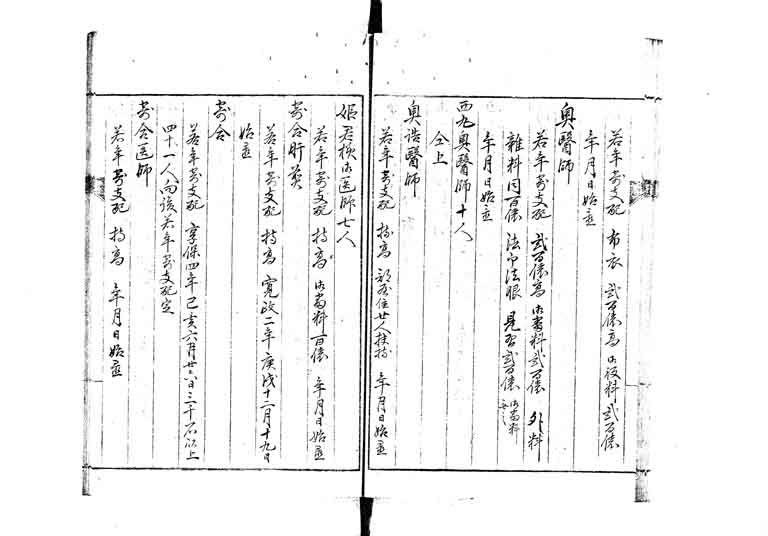 若年寄支配 布衣 弐百俵高 御役料弐百俵
年月日始並
奥醫師
若年寄支配 弐百俵高 御番料弐百俵 外料
雑料同百俵 法印法眼 是百弐百俵 御番料
年月日始並
西丸奥醫師十人
仝上
奥詰醫師
若年寄支配 持高 部屋住廿人扶持 年月日始並
姫君様御医師七人
若年寄支配 持高 御番料百俵 年月日始並
寄合肝煎
若年寄支配 持高 寛政二年庚戌十二月十九日
始並
寄合
若年寄支配 享保四年己亥六月廿八日三千石以上
四十一人向後若年寄支配定
寄合医師
若年寄支配 持高 年月日始並